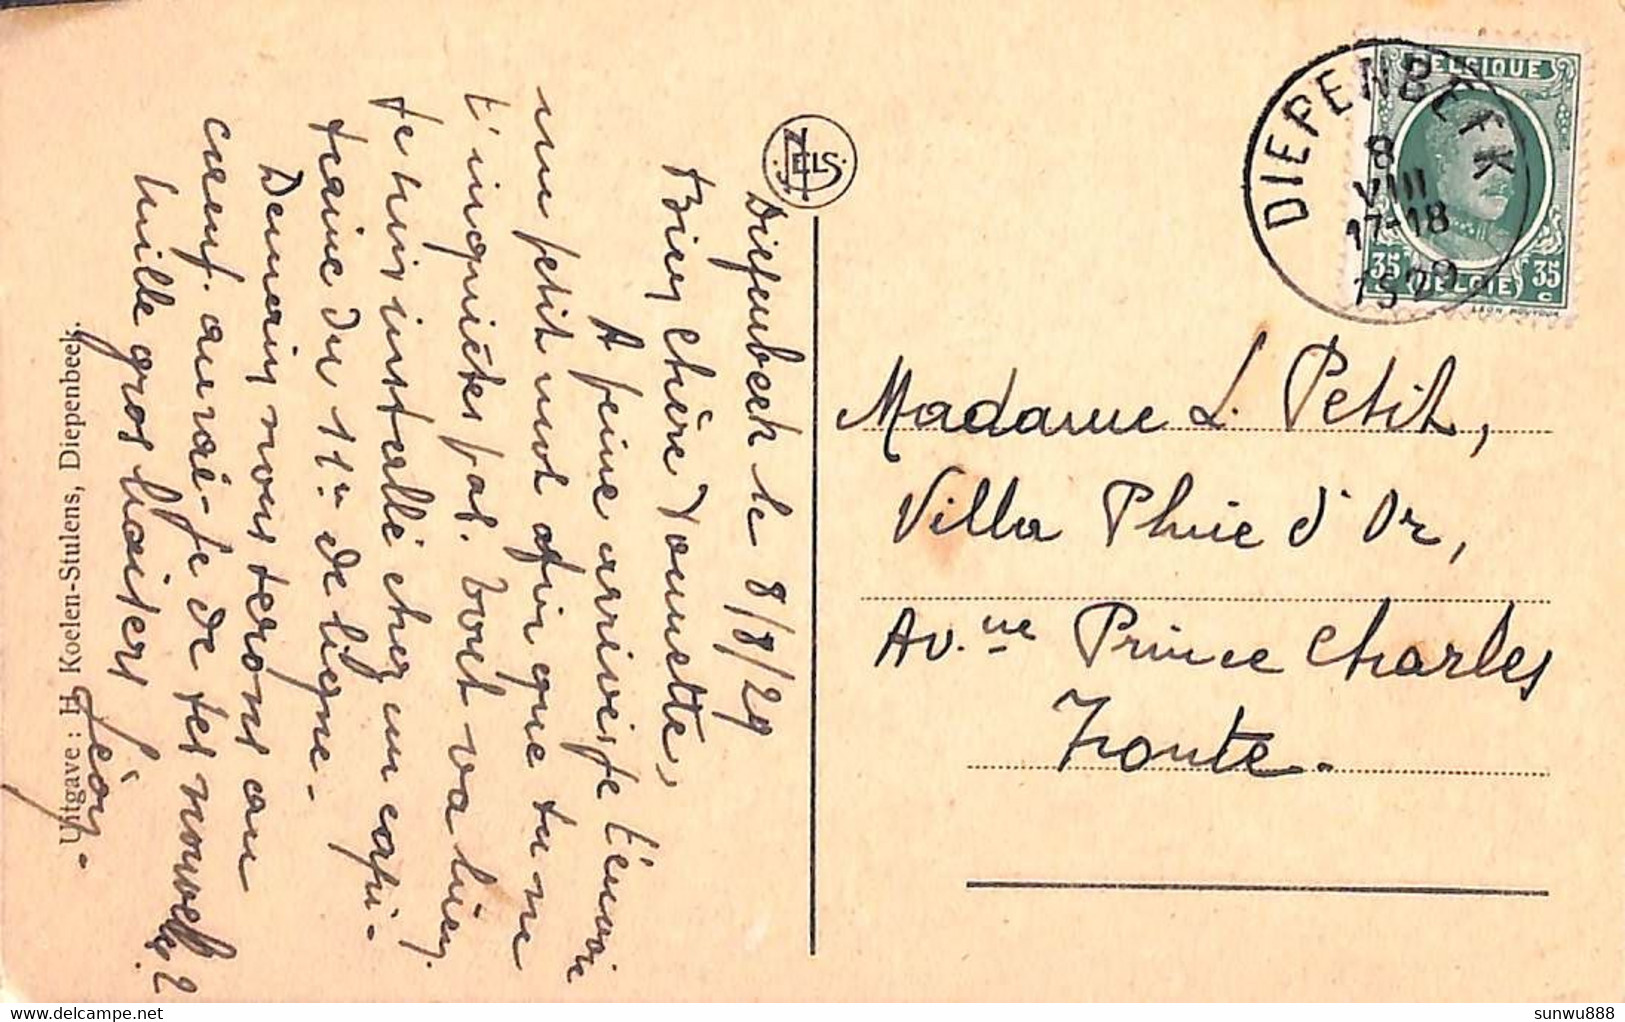 Diepenbeek le 8/8/29
Bien chère Nounette,
A peine arrivé je t'envoie
un petit mot afin que tu ne
t'inquiètes pas. Tout va bien.
Je suis installé chez un capi-
taine du 11e de ligne.
Demain nous serons au
camp. aurai-je de tes nouvelles?
Mille gros baisers
Uitgave : H. Koelen-Stulens, Diepenbeek.
NELS
DIEPENBEEK
8
VIII
17-18
1929
BELGIQUE
35 BELGIE 35
C C
Madame L. Petit,
Villa Pluie d'Or,
Av.ue Prince Charles
Knocke.
sunwu888